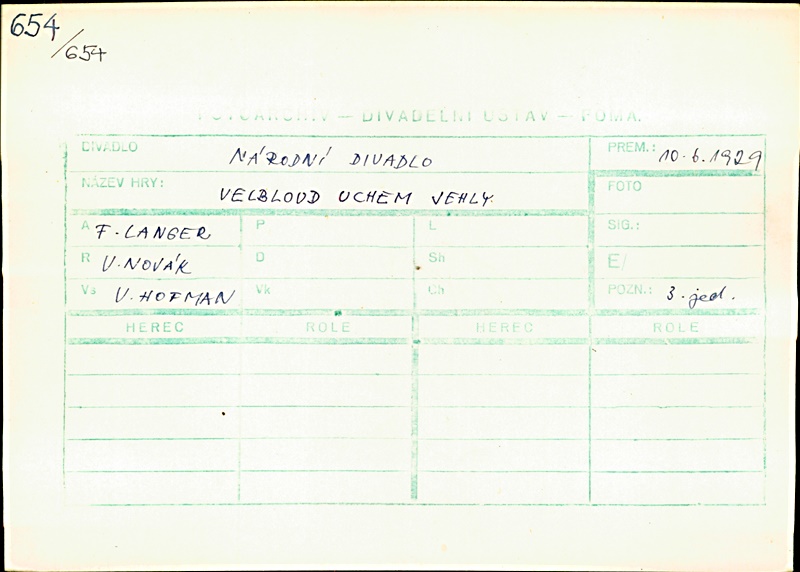 654
/654
FOTOARCHIV — DIVADELNÍ ÚSTAV — FOMA.
DIVADLO NÁRODNÍ DIVADLO PREM.: 10.6.1929
NÁZEV HRY: VELBLOUD UCHEM JEHLY. FOTO
A F. LANGER P L SIG.:
R V. NOVÁK D Sh E/
Vs V. HOFMAN Vk Ch POZN.: 3. jed.
HEREC ROLE HEREC ROLE